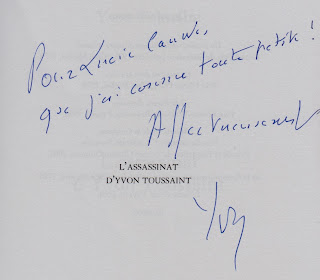 Pour Lucie Cauwe,
que j'ai connue toute petite !
Affectueusement
L'ASSASSINAT
D'YVON TOUSSAINT
Yvon